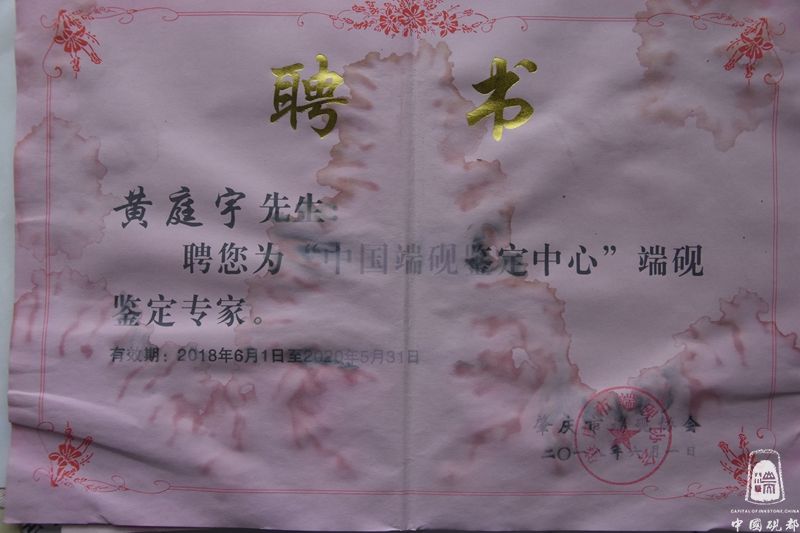 聘 书
黄庭宇 先生：
聘您为“中国端砚鉴定中心”端砚
鉴定专家。
有效期：2018年6月1日至2020年5月31日
肇庆市端砚协会
二〇一 年六月一日
CAPITAL OF INKSTONE,CHINA
中国砚都